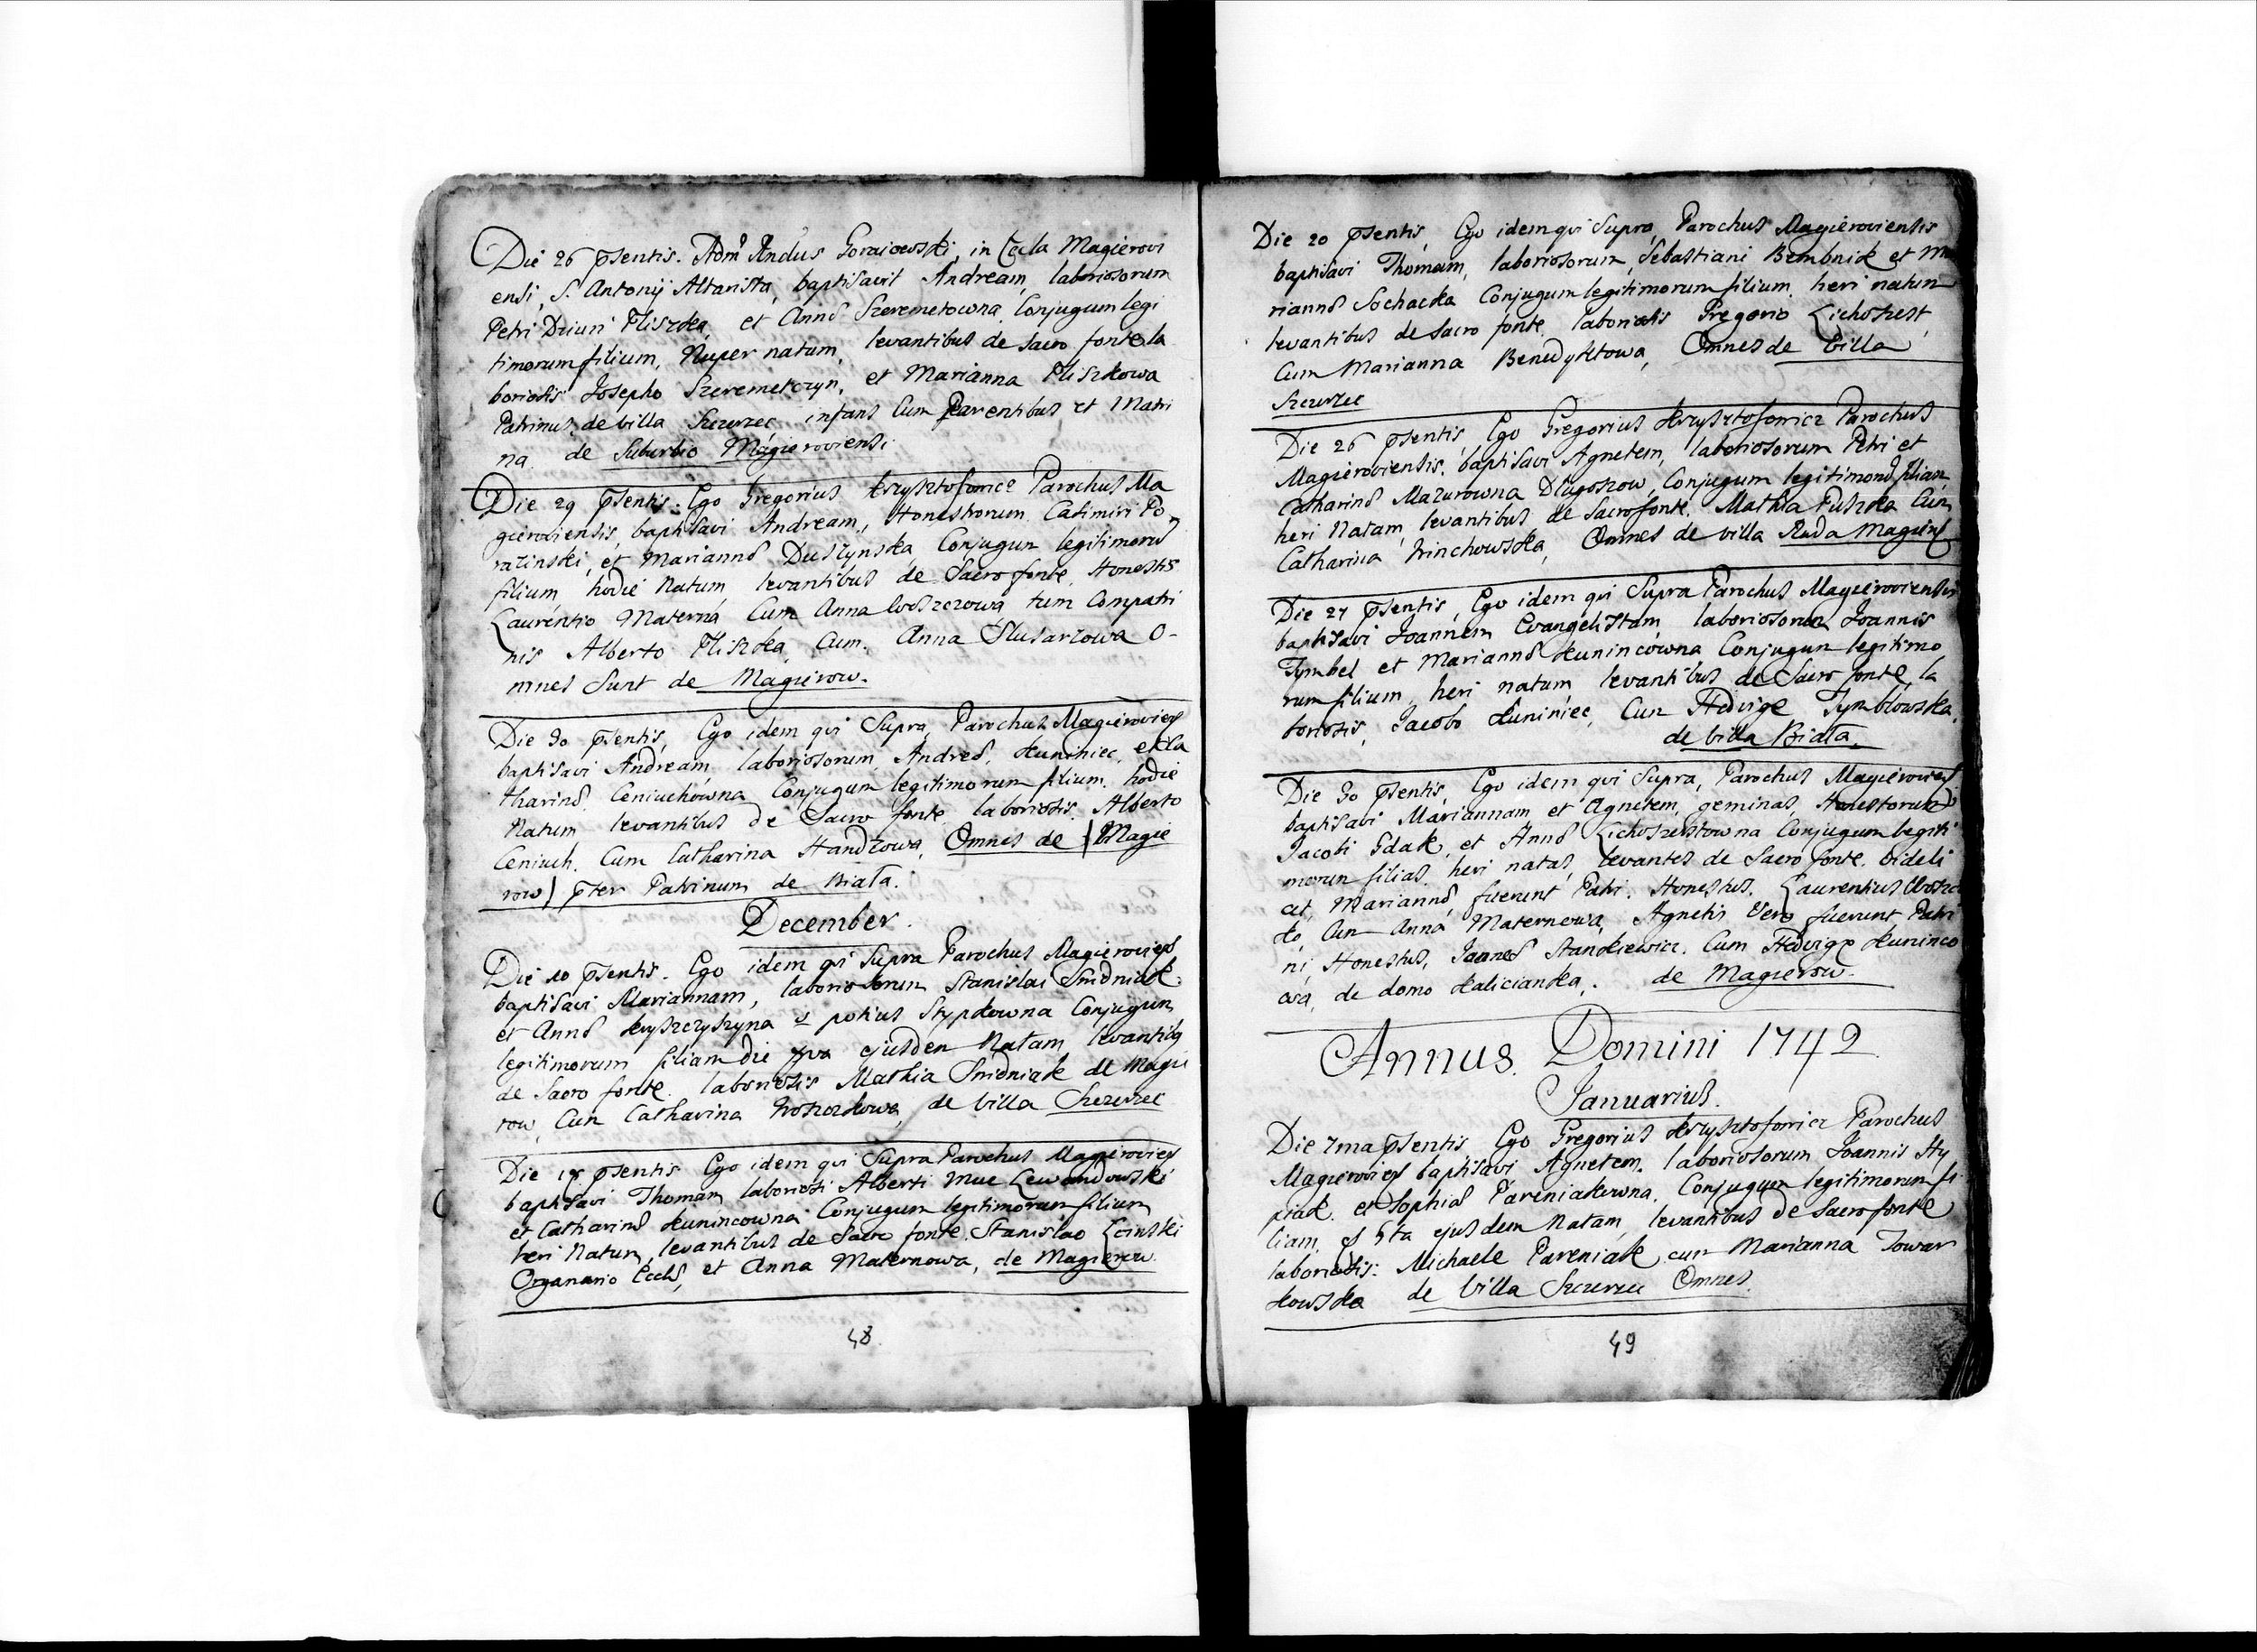 Die 26 psentis. Adm Rndus Goraiowski, in Eccla Magierovi
ensi, S. Antonij Altarista, baptisavit Andream, laboriosorum
Petri Dziuri Pliszka, et Annæ Szeremetowna Conjugum legi
timorum filium, Nuper natum, levantibus de Sacro fonte la
boriosis Josepho Szeremetczyn, et Marianna Pliszkowa
Patrinus de villa Szczerzec, infans Cum Parentibus et Matri
na de Suburbio Magieroviensi
Die 29 psentis. Ego Gregorius Krzysztofowicz Parochus Ma
gieroviensis, baptisavi Andream, Honestorum Casimiri Po
razinski, et Mariannæ Duszynska Conjugum legitimorum
filium hodie Natum, levantibus de Sacro fonte, Honestis
Laurentio Materna Cum Anna Woszczowa, tum Conpatri
nis Alberto Pliszka, Cum Anna Slusarzowa O-
mnes Sunt de Magierow.
Die 30 psentis, Ego idem qui Supra, Parochus Magierovies
baptisavi Andream, laboriosorum, Andreæ, Kuniniec, et Ca
tharinæ, Ceniuchowna Conjugum legitimorum filium hodie
Natum levantibus de Sacro fonte laboriosis. Alberto
Ceniuch, Cum Catharina Handzowa, Omnes de | Magie
row| pter Patrinum de Biała.
December.
Die 10 psentis. Ego idem qui Supra Parochus Magierovies
baptisavi Mariannam, laboriosorum Stanislai Snidniak
et Annæ Kryszczyszyna potius Stypkowna Conjugum
legitimorum filiam die ejusdem Natam levantibq
de Sacro fonte. laboriosis Mathia Snidniak de Magie
row, Cum Catharina Groszkowa, de villa Szczerzec
Die 18 psentis Ego idem qui Supra Parochus Magierovies
baptisavi Thomam laboriosi Alberti Lewandowski
et Catharinæ Kunincowna Conjugum legitimorum filium
heri Natum, levantibus de Sacro fonte Stanislao Łoinski
Organario Eccle, et Anna Maternowa, de Magierow.
48
Die 20 psentis, Ego idem qui Supra, Parochus Magieroviensis
baptisavi Thomam, laboriosorum, Sebastiani Bembnick et M
riannæ Sochacka Conjugum legitimorum filium heri natum
levantibus de Sacro fonte laboriosis Gregorio Lichoszest
Cum Marianna Benedyktowa, Omnes de Villa
Szczerzec
Die 26 psentis, Ego Gregorius Krzysztofowicz Parochus
Magieroviensis, baptisavi Agnetem, laboriosorum Petri et
Catharinæ Mazurowna Długoszow, Conjugum legitimoru filiam
heri Natam, levantibus de Sacro fonte Mathia Puszka Cum
Catharina Hrinchowska, Omnes de villa Ruda Magiers
Die 27 psentis, Ego idem qui Supra Parochus Magieroviensis
baptisavi Joannem Evangelistam, laboriosorum Joannis
Tymbel et Mariannæ Kunincowna Conjugum legitimo
rum filium heri natum levantibus de Sacro fonte la
boriosis, Jacobo Kuniniec, Cum Hedvige Tymblowska,
de villa Biała.
Die 30 psentis, Ego idem qui Supra, Parochus Magierovies
baptisavi Mariannam et Agnetem, geminas, Honestorum
Jacobi Gdak, et Annæ Lichoszestowna Conjugum legiti
morum filias heri natas, levantes de Sacro fonte videli
cet, Mariannæ, fuerunt Patri. Honestus, Laurentius Woszcz
ko, Cum Anna Maternowa, Agnetis Vero fuerunt Patri
ni, Honestus, Joannes Stankiewicz, Cum Hedvige Kuninco
wa, de domo Kalicianka, de Magierow.
Annus. Domini 1742
Januarius.
Die 7ma psentis, Ego Gregorius Krzysztofowicz Parochus
Magierovies baptisavi Agnetem, laboriosorum Joannis Hy
piak et Sophiæ Pareniakowna, Conjugum legitimorum fi
liam 5ta ejusdem Natam levantibus de Sacro fonte
laboriosis: Michaele Pareniak cum Marianna Towar
kowska de Villa Szczerzec Omnes.
49